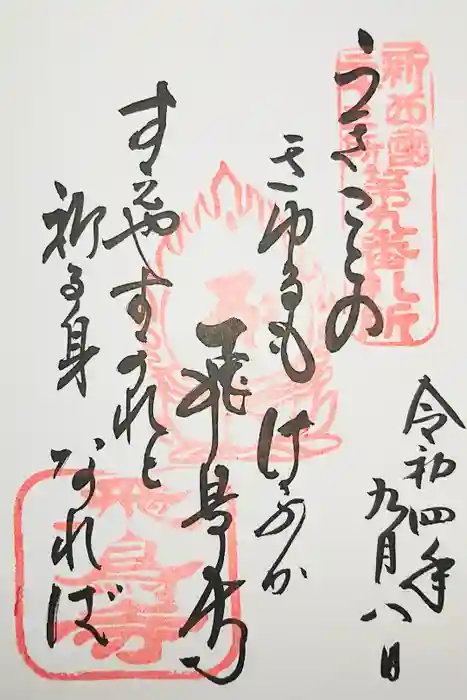 新西國
三十三所第九番札所
うきことの
きゆるも けふか
飛鳥寺
すゑやすかれと
祈る身 なれば
令和四年
九月八日
飛鳥寺